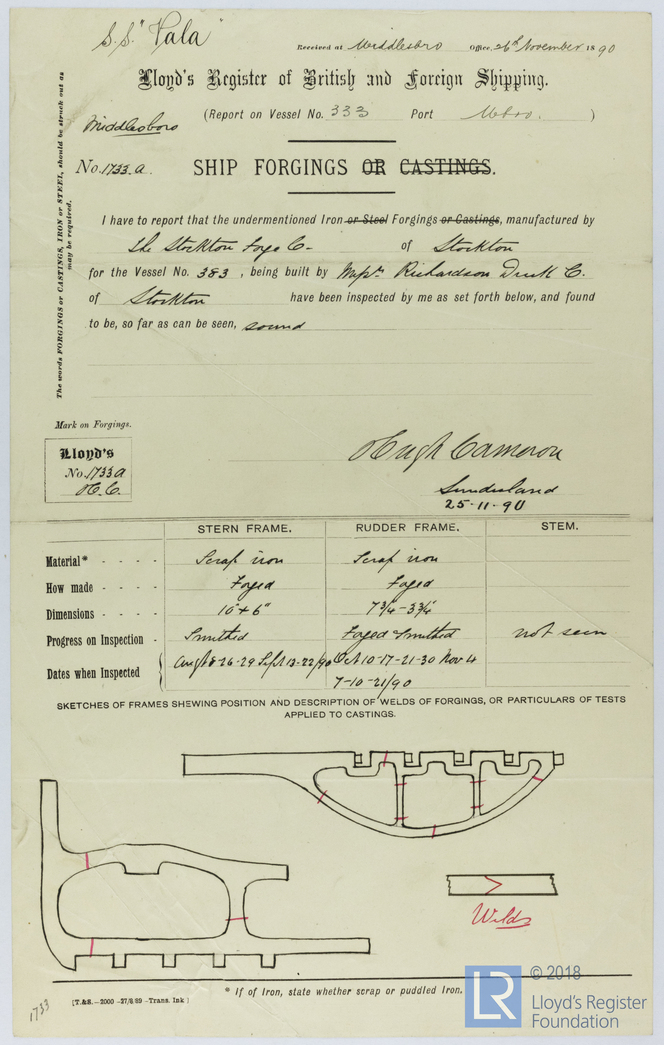 S.S. "Vala"
Received at Middlesbro Office, 26th November 1890
Lloyd's Register of British and Foreign Shipping.
Middlesboro
(Report on Vessel No. 333 Port Mbro. )
No. 1733.a. SHIP FORGINGS OR CASTINGS.
The words FORGINGS or CASTINGS, IRON or STEEL, should be struck out as
may be required.
I have to report that the undermentioned Iron or Steel Forgings or Castings, manufactured by
The Stockton Forge Co. of Stockton
for the Vessel No. 383, being built by Messrs. Richardson Duck Co.
of Stockton have been inspected by me as set forth below, and found
to be, so far as can be seen, sound
Mark on Forgings.
Lloyd's
No. 1733a
H.C.
Hugh Cameron
Sunderland
25-11-90
STERN FRAME. RUDDER FRAME. STEM.
Material* - - - - Scrap iron Scrap iron
How made - - - - Forged Forged
Dimensions - - - - 10" + 6" 7¾ - 3¾
Progress on Inspection - Smithed Forged Smithed not seen
Dates when Inspected Augt 8-26-29 Sept 13-22/90 Oct 10-17-21-30 Nov 4
7-10-21/90
SKETCHES OF FRAMES SHEWING POSITION AND DESCRIPTION OF WELDS OF FORGINGS, OR PARTICULARS OF TESTS
APPLIED TO CASTINGS.
Welds
* If of Iron, state whether scrap or puddled Iron.
[T.&S.—2000—27/8/89—Trans. Ink]
1733
LR
© 2018
Lloyd's Register
Foundation